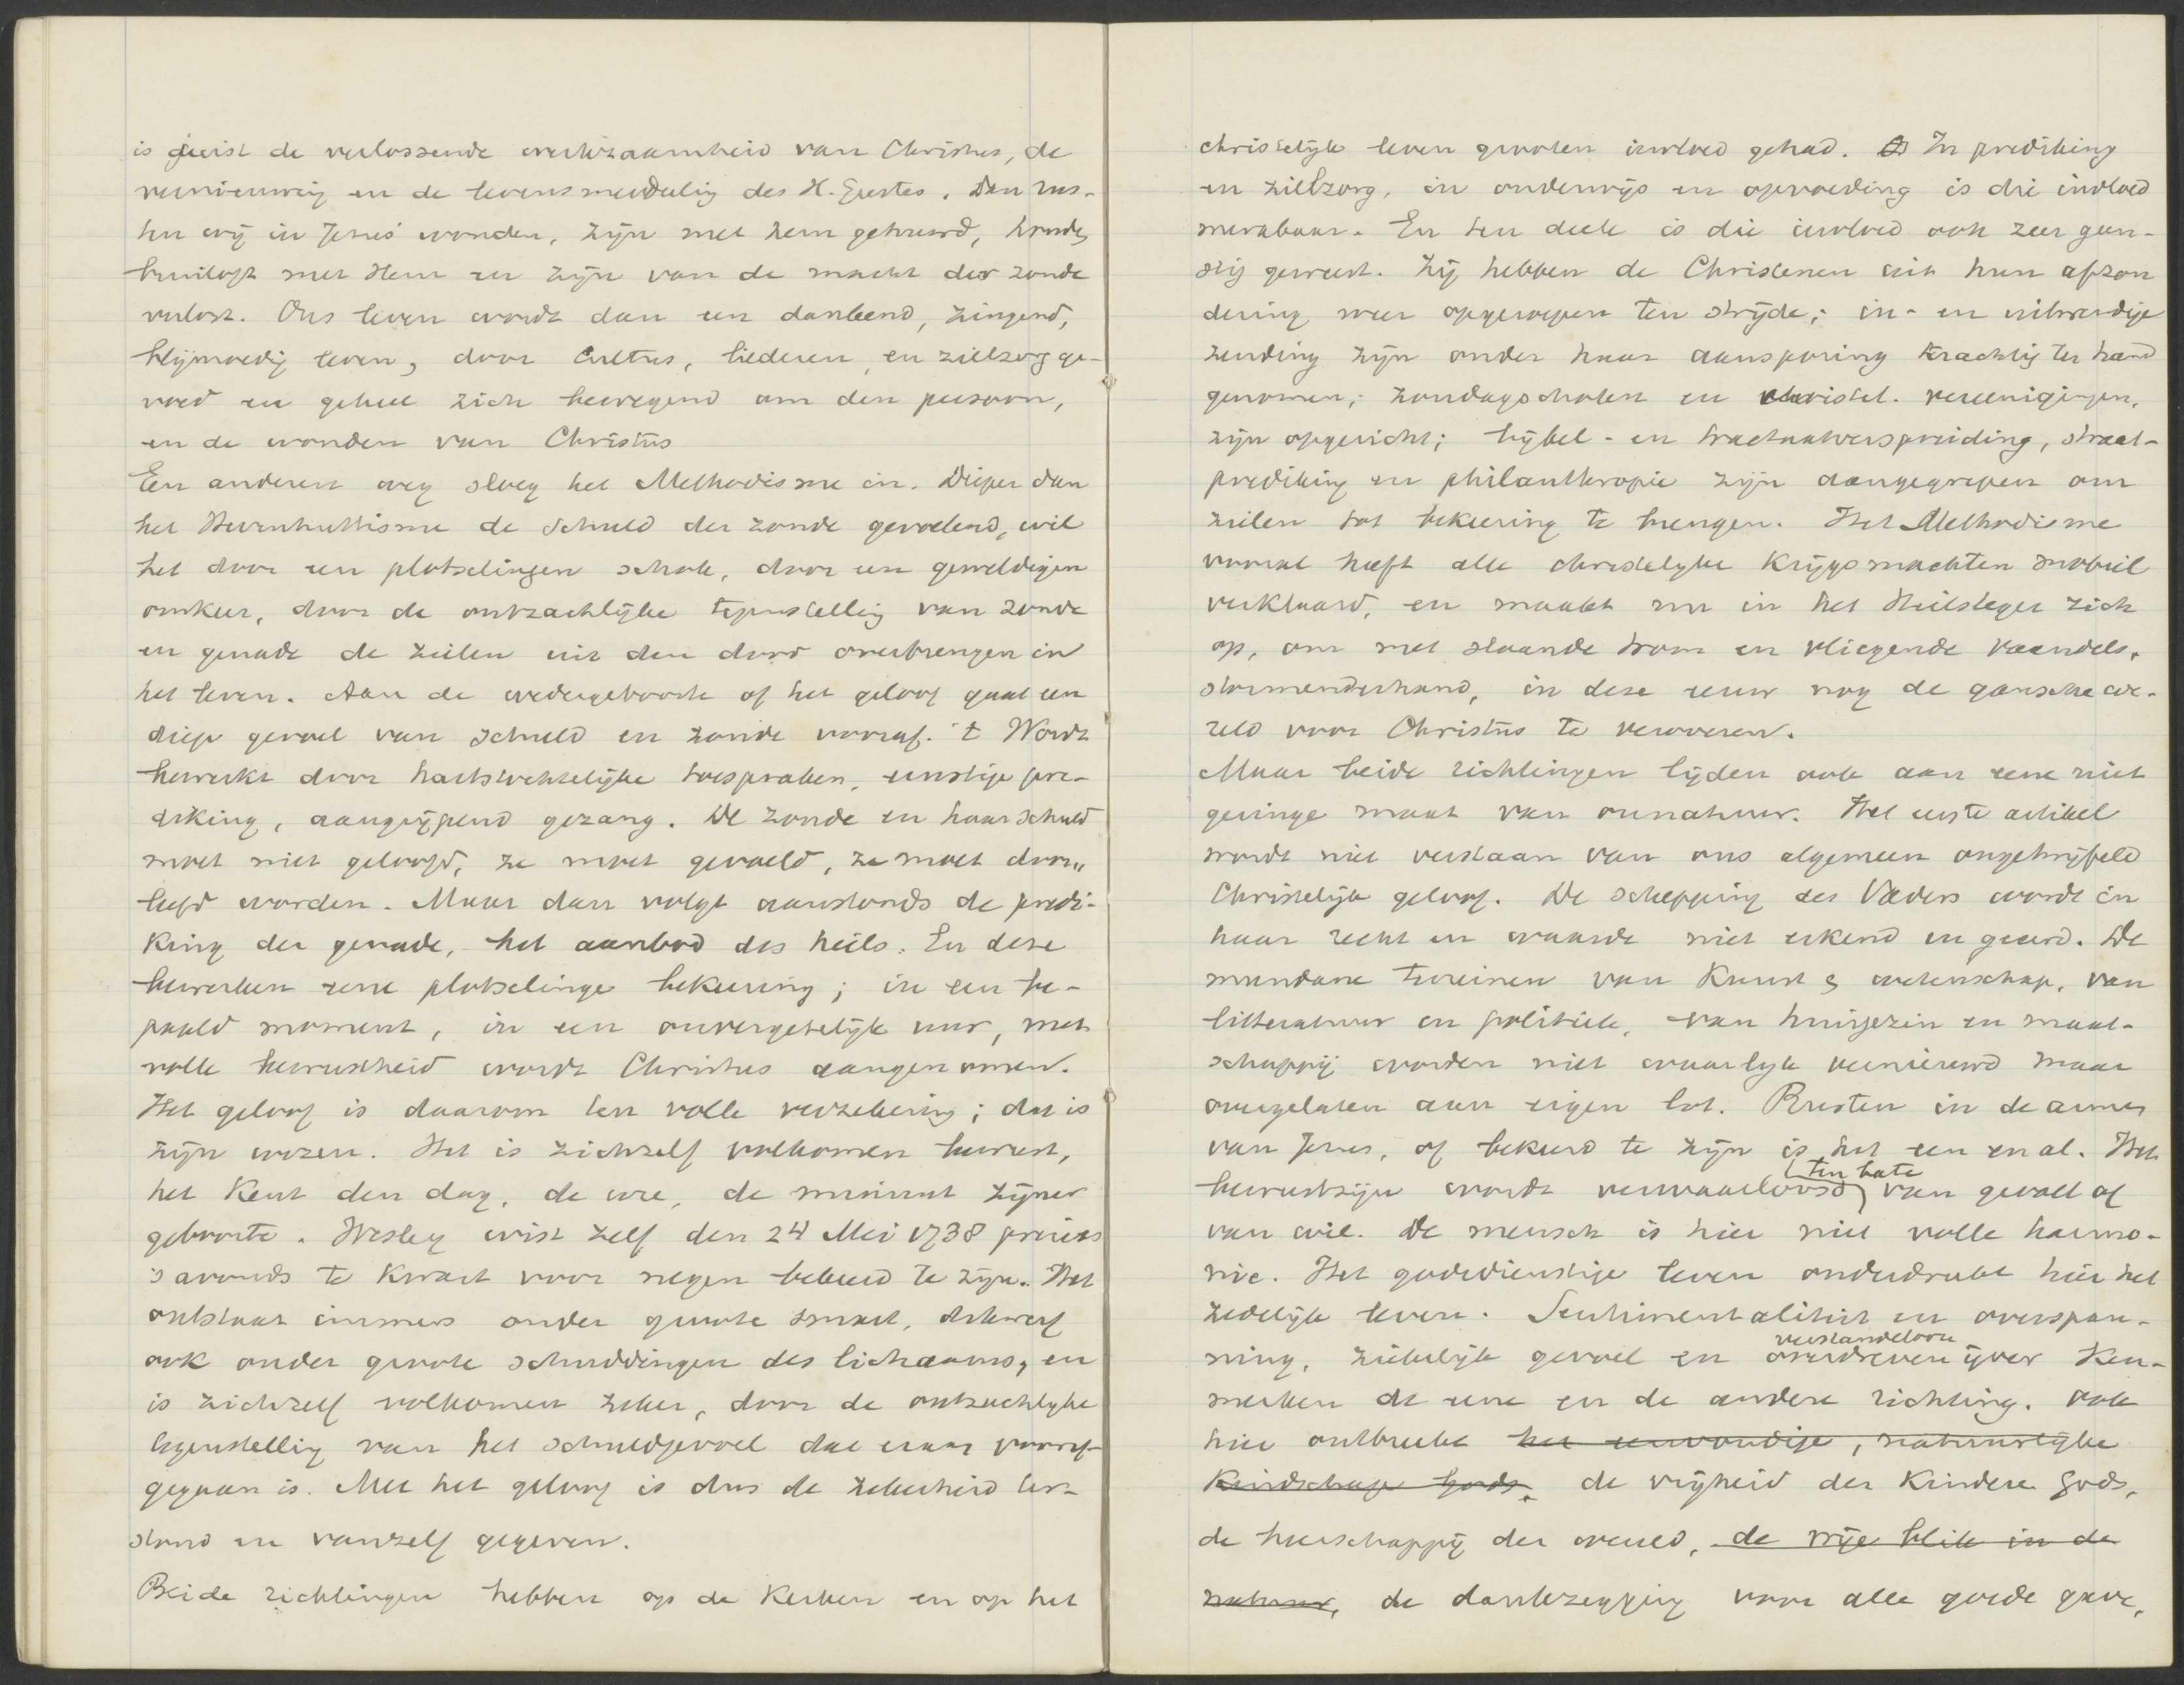 is juist de verlossende werkzaamheid van Christus, de
vernieuwing en de levensmeedeling des H. Geestes. Dan rus-
ten wij in Jezus' wonden, zijn met hem getrouwd, houden
bruiloft met Hem en zijn van de macht der zonde
verlost. Ons leven wordt dan een dankend, zingend,
blijmoedig leven, door Cultus, liederen, en zielzorg ge-
voed en geheel zich bewegend om den persoon,
en de wonden van Christus
Een anderen weg sloeg het Methodisme in. Dieper dan
het Hernhuttisme de schuld der zonde gevoelend, wil
het door een plotselingen schok, door een geweldigen
omkeer, door de ontzachlijke tegenstelling van zonde
en genade de zielen uit den dood overbrengen in
het leven. Aan de wedergeboorte of het geloof gaat een
diep gevoel van schuld en zonde vooraf. 't Wordt
bewerkt door hartstochtelijke toespraken, ernstige pre-
diking, aangrijpend gezang. De zonde en haar schuld
moet niet geloofd, ze moet gevoeld, ze moet door„
leefd worden. Maar dan volgt aanstonds de predi-
king der genade, het aanbod des heils. En deze
bewerken eene plotselinge bekeering; in een be-
paald moment, in een onvergetelijk uur, met
volle bewustheid wordt Christus aangenomen.
Het geloof is daarom ten volle verzekering; dat is
zijn wezen. Het is zichzelf volkomen bewust,
het kent den dag, de ure, de minuut zijner
geboorte. Wesley wist zelf den 24 Mei 1738 precies
's avonds te kwart voor negen bekeerd te zijn. Het
ontstaat immers onder groote smart, dikwerf
ook onder groote schuddingen des lichaams, en
is zichzelf volkomen zeker, door de ontzachlijke
tegenstelling van het schuldgevoel dat eraan vooraf-
gegaan is. Met het geloof is dus de zekerheid ter-
stond en vanzelf gegeven.
Beide richtingen hebben op de kerken en op het
christelijk leven grooten invloed gehad. In prediking
en zielzorg, in onderwijs en opvoeding is die invloed
merkbaar. En ten deele is die invloed ook zeer gun-
stig geweest. Zij hebben de Christenen uit hun afzon
dering weer opgeroepen ten strijde; in- en uitwendige
zending zijn onder haar aansporing krachtig ter hand
genomen; zondagscholen en christel. vereenigingen,
zijn opgericht; bijbel- en tractaatverspreiding, straat-
prediking en philanthropie zijn aangegrepen om
zielen tot bekeering te brengen. Het Methodisme
vooral heeft alle christelijke krijgsmachten mobiel
verklaard, en maakt nu in het Heilsleger zich
op, om met slaande trom en vliegende vaandels,
stormenderhand, in deze eeuw nog de gansche we-
reld voor Christus te veroveren.
Maar beide richtingen lijden ook aan eene niet
geringe maat van onnatuur. Het eerste artikel
wordt niet verstaan van ons algemeen ongetwijfeld
Christelijk geloof. De schepping des Vaders wordt in
haar recht en waarde niet erkend en geeerd. De
mundane terreinen van kunst & wetenschap, van
litteratuur en politiek, van huisgezin en maat-
schappij worden niet waarlijk vernieuwd maar
overgelaten aan eigen lot. Rusten in de armen
van Jezus, of bekeerd te zijn is het een en al. Het
bewustzijn wordt verwaarloosd ten bate van gevoel of
van wil. De mensch is hier niet volle harmo-
nie. Het godsdienstige leven onderdrukt hier het
zedelijk leven. Sentimentaliteit en overspan-
ning, ziekelijk gevoel en overdreven verstandelooze ijver ken-
merken de eene en de andere richting. Ook
hier ontbreekt het eenvoudige, natuurlijke
kindschap Gods. de vrijheid der kinderen Gods,
de heerschappij der wereld, de vrije blik in de
natuur, de dankzegging voor alle goede gave,